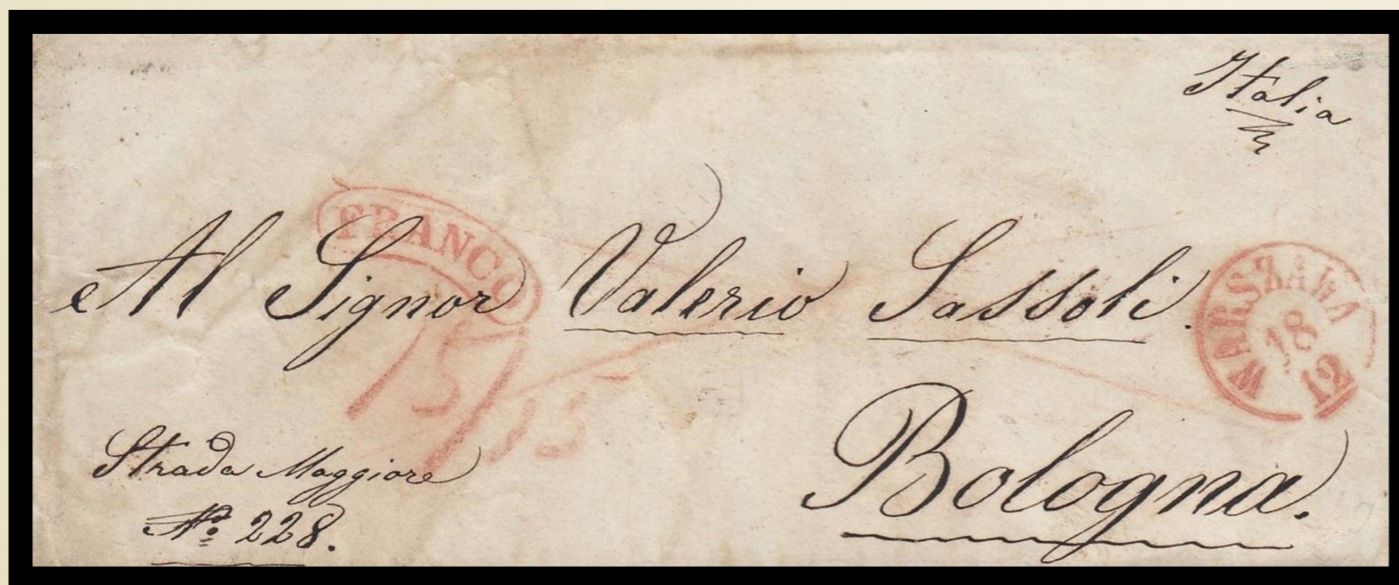 Italia
FRANCO
Al Signor Valerio Sassoli.
WARSZAWA
18
12
15
Bologna.
Strada Maggiore
No. 228.